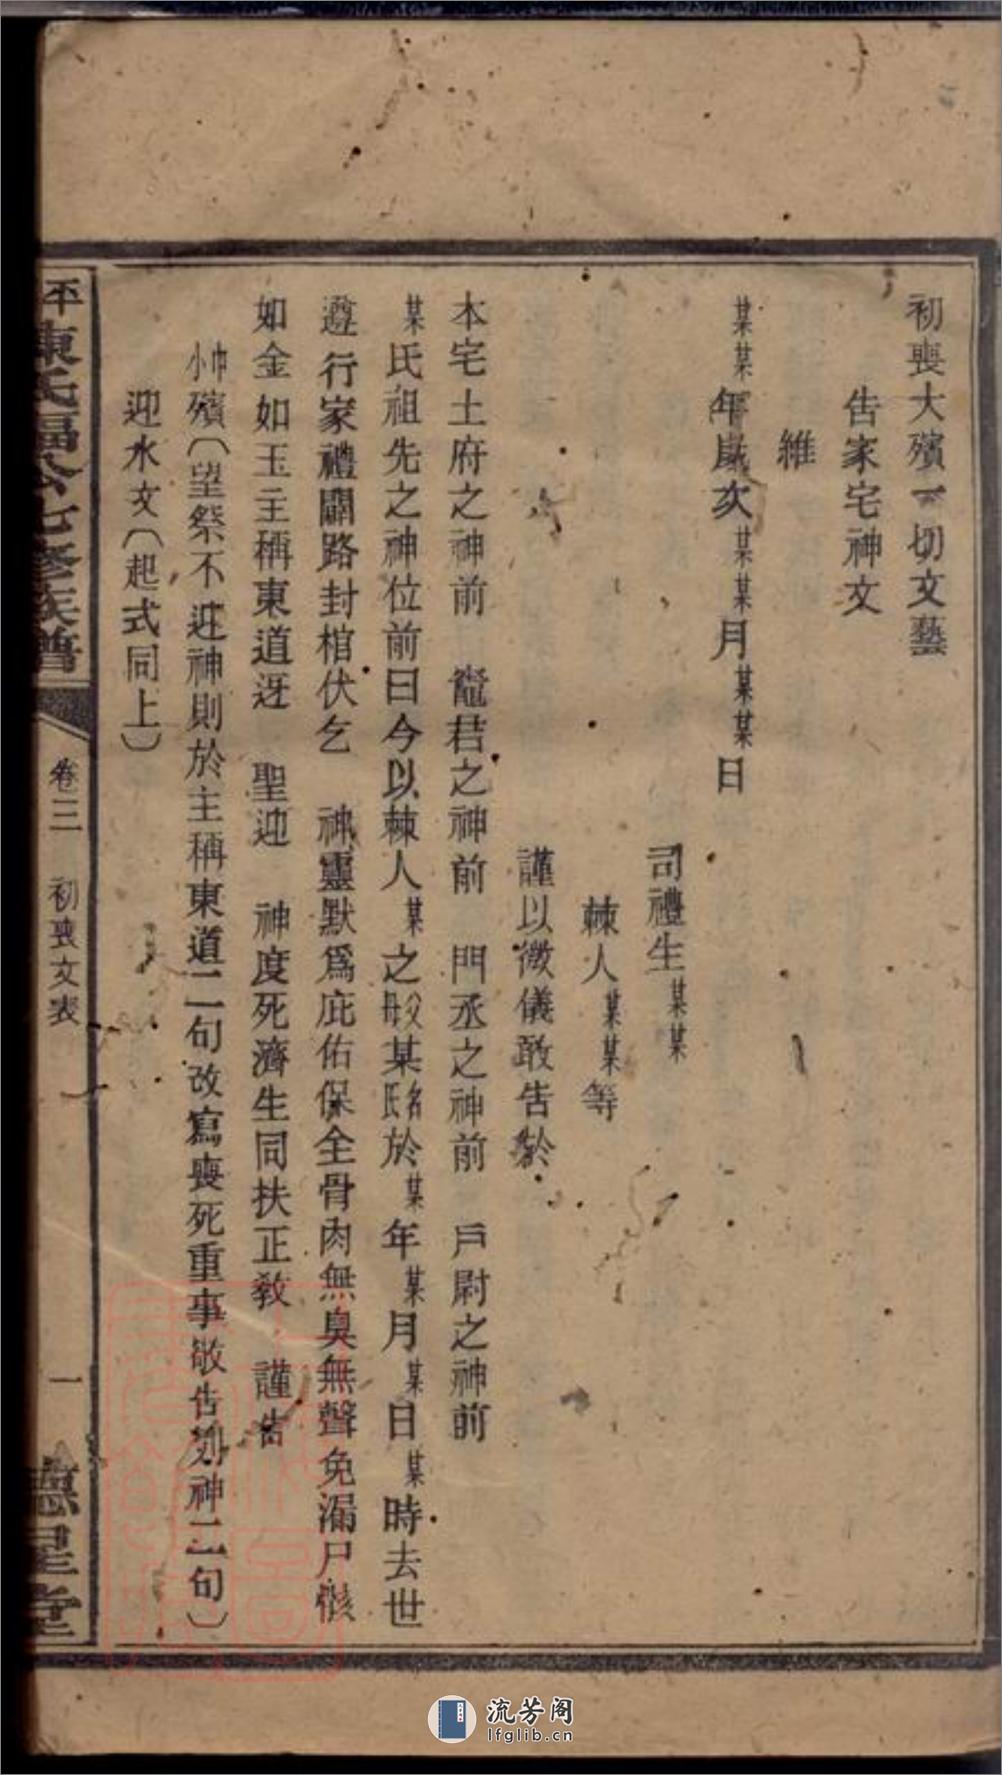 初喪大殯一切文藝
告家宅神文
維
某某年歲次某某月某某日
司禮生某某
棘人某某等
謹以微儀敢告於
本宅土府之神前　竈君之神前　門丞之神前　戶尉之神前
某氏祖先之神位前曰今以棘人某之父母某名氏於某年某月某日某時去世
遵行家禮開路封棺伏乞　神靈默爲庇佑保全骨肉無臭無聲免漏尸骸
如金如玉主稱東道迓　聖迎　神度死濟生同扶正教　謹告
小巾殯（望祭不迓神則於主稱東道二句改寫喪死重事敬告列神二句）
迎水文（起式同上）
平東氏福公七修族譜
卷三　初喪文表
一
惪星堂
流芳阁
lfglib.cn